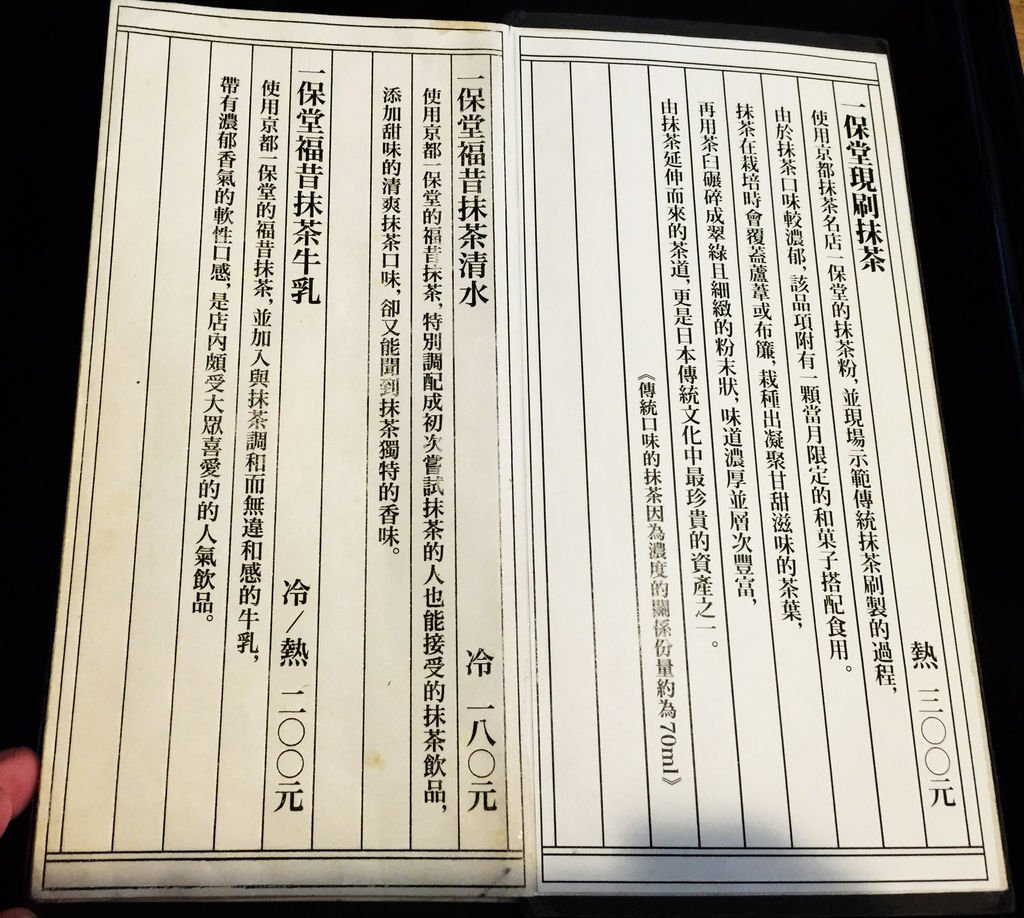 一保堂現刷抹茶
熱 三〇〇元
使用京都抹茶名店一保堂的抹茶粉，並現場示範傳統抹茶刷製的過程，
由於抹茶口味較濃郁，該品項附有一顆當月限定的和菓子搭配食用。
抹茶在栽培時會覆蓋蘆葦或布簾，栽種出凝聚甘甜滋味的茶葉，
再用茶臼碾碎成翠綠且細緻的粉末狀，味道濃厚並層次豐富，
由抹茶延伸而來的茶道，更是日本傳統文化中最珍貴的資產之一。
《傳統口味的抹茶因為濃度的關係份量約為70ml》
一保堂福昔抹茶清水 冷 一八〇元
使用京都一保堂的福昔抹茶，特別調配成初次嘗試抹茶的人也能接受的抹茶飲品，
添加甜味的清爽抹茶口味，卻又能聞到抹茶獨特的香味。
一保堂福昔抹茶牛乳 冷/熱 二〇〇元
使用京都一保堂的福昔抹茶，並加入與抹茶調和而無違和感的牛乳，
帶有濃郁香氣的軟性口感，是店內頗受大眾喜愛的的人氣飲品。